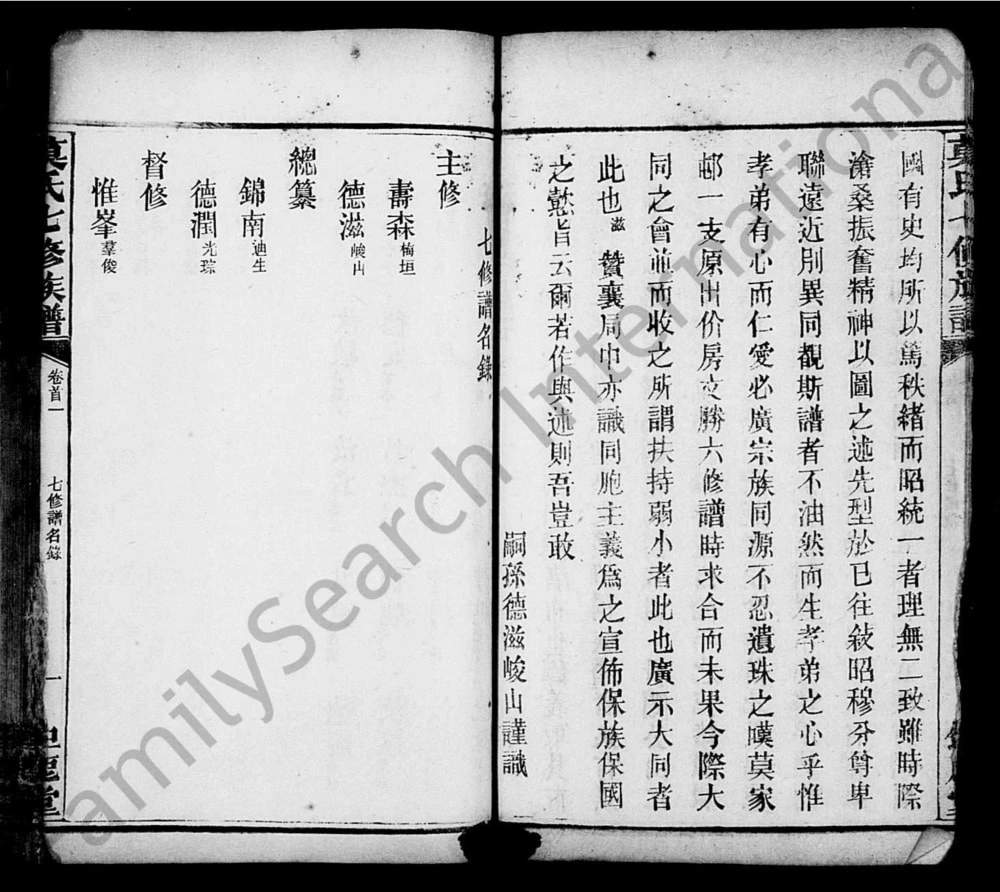 國有史均所以篤秩緒而昭統一者理無二致雖時際
滄桑振奮精神以圖之述先型於已往敍昭穆分尊卑
聯遠近別異同覩斯譜者不油然而生孝弟之心乎惟
孝弟有心而仁愛必廣宗族同源不忍遺珠之嘆莫家
邨一支原出价房文勝六修譜時求合而未果今際大
同之會並而收之所謂扶持弱小者此也廣示大同者
此也滋贊襄局中亦識同胞主義爲之宣佈保族保國
之懿旨云爾若作與述則吾豈敢
嗣孫德滋峻山謹識
七修譜名錄
主修
壽森梅垣
德滋峻山
總纂
錦南迪生
德潤光琮
督修
惟峯羣俊
莫氏七修族譜
卷首一
七修譜名錄
一
鉅鹿堂
FamilySearch International